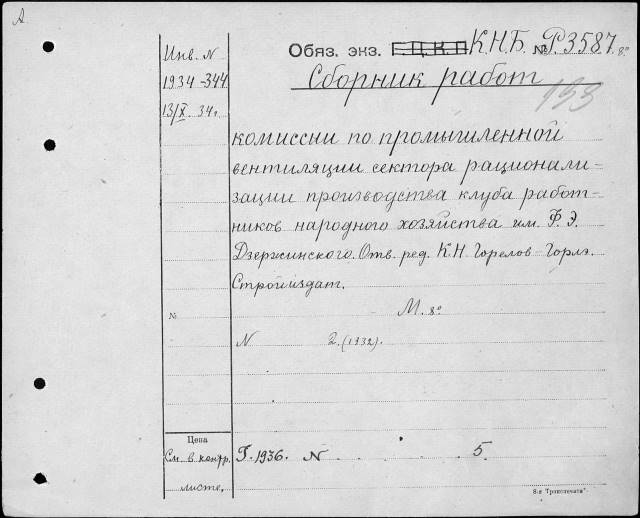 А
Инв. N
1934-344
13/X. 34г.
Обяз. экз. Г.Ц.К.П К.Н.Б. № Р3587. 8°
Сборник работ
193
комиссии по промышленной
вентиляции сектора рационали-
зации производства клуба работ-
ников народного хозяйства им. Ф. Э.
Дзержинского. Отв. ред. К.Н Горелов-Горлэ.
Стройиздат.
М. 8°
№
N 2. (1932).
Цена
См. в контр.
листе.
Г. 1936. N . . . . 5.
8-я Транспечати"